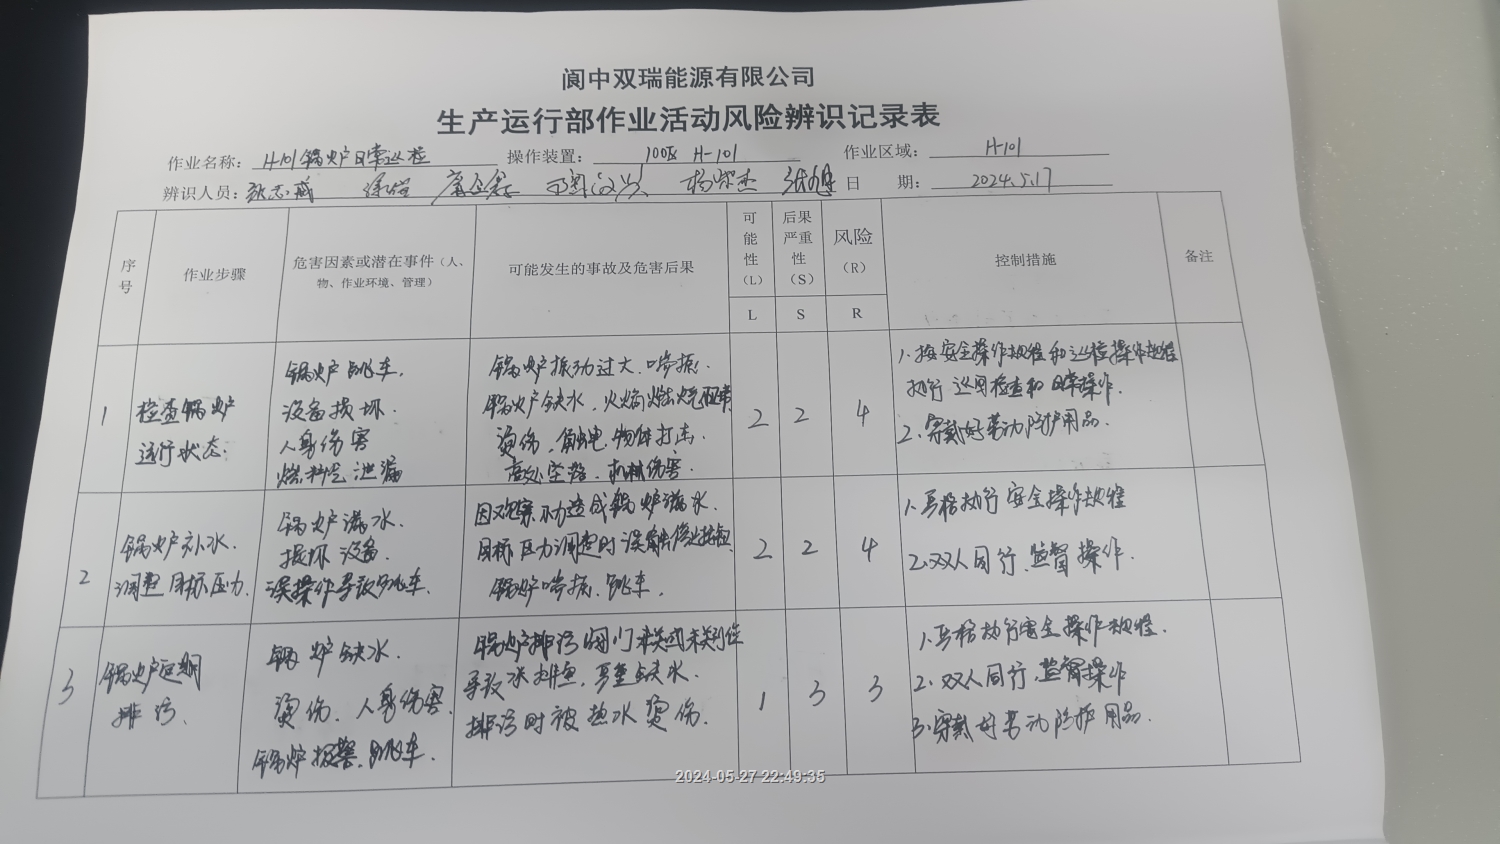 阆中双瑞能源有限公司
生产运行部作业活动风险辨识记录表
作业名称: H-101锅炉日常巡检 操作装置: 100区 H-101 作业区域: H-101
辨识人员: 日 期: 2024.5.17
序号 作业步骤 危害因素或潜在事件(人、物、作业环境、管理) 可能发生的事故及危害后果 可能性(L) 后果严重性(S) 风险(R) 控制措施 备注
L S R
1
检查锅炉
运行状态.
锅炉跳车.
设备损坏.
人身伤害
燃料气泄漏
锅炉振动过大.喘振.
锅炉缺水,火焰燃烧异常
烫伤,触电.物体打击.
高处坠落.机械伤害.
2 2 4
1.按安全操作规程和巡检操作规程
执行巡回检查和日常操作.
2.穿戴好劳动防护用品.
2
锅炉补水.
调整目标压力.
锅炉满水.
损坏设备.
误操作导致跳车.
因观察不力造成锅炉满水.
目标压力调整时误触停止按钮
锅炉喘振.跳车.
2 2 4
1.严格执行安全操作规程
2.双人同行.监督操作.
3
锅炉定期
排污.
锅炉缺水.
烫伤.人身伤害.
锅炉报警.跳车.
锅炉排污阀门未关或未关到位
导致水排, 严重缺水.
排污时被热水烫伤.
1 3 3
1.严格执行安全操作规程.
2.双人同行.监督操作
3.穿戴好劳动防护用品.
2024-05-27 22:49:35